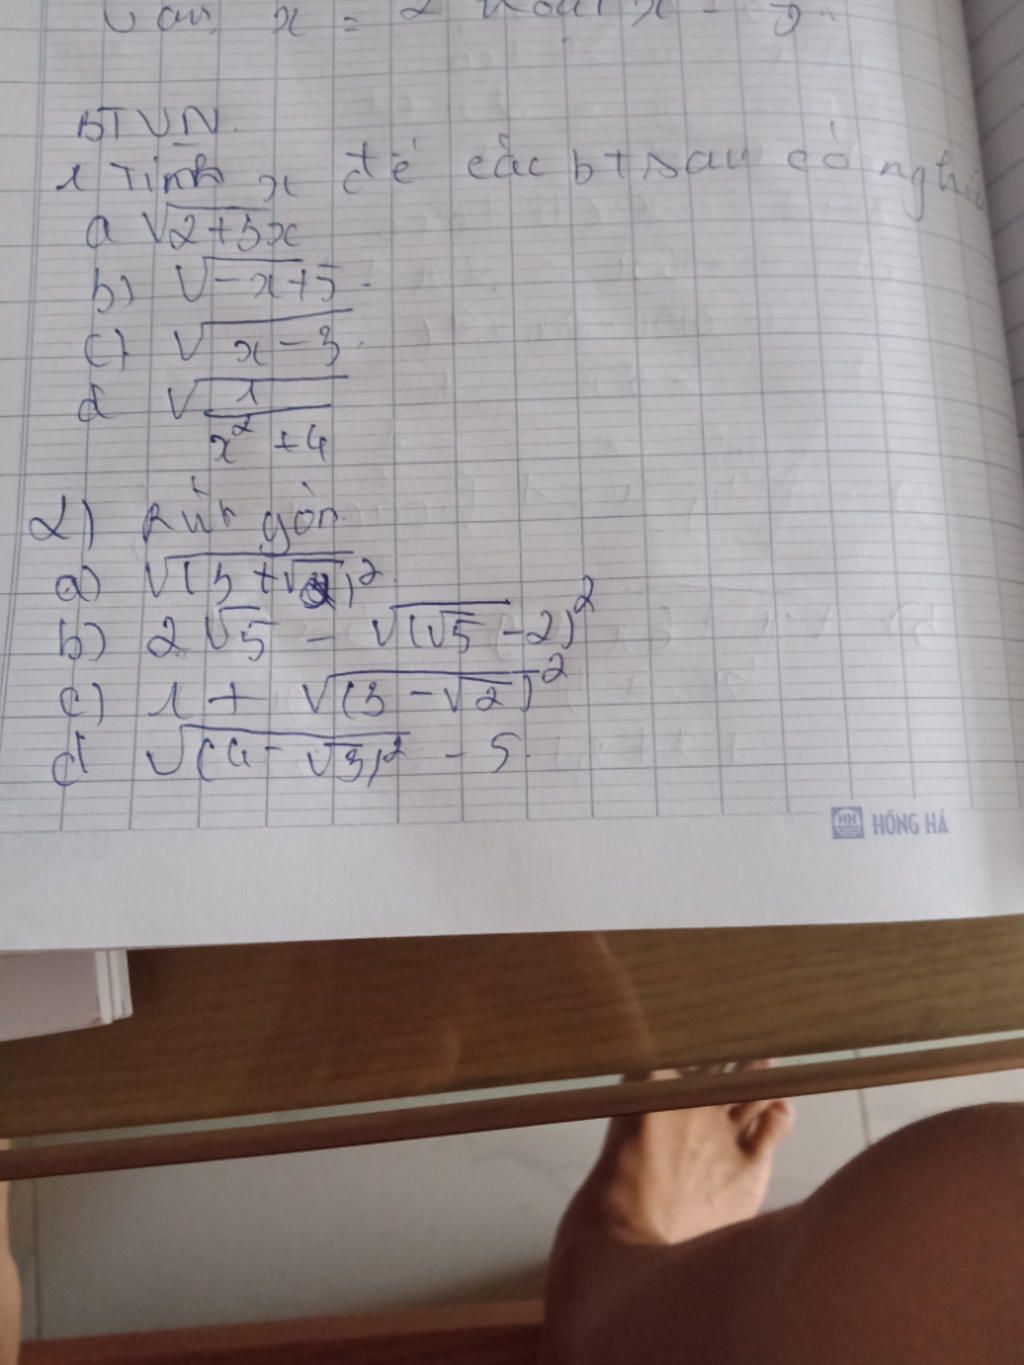 x = 2 hoặc x =
BTVN.
1 Tính x để các bt sau có nghĩa
a √2+3x
b) √-x+5
c) √x-3
d √1/x²+4
2) Rút gọn
a) √(3+√2)²
b) 2√5 - √(√5-2)²
c) 1 + √(3-√2)²
d √(4-√3)² - 5
HỒNG HÀ